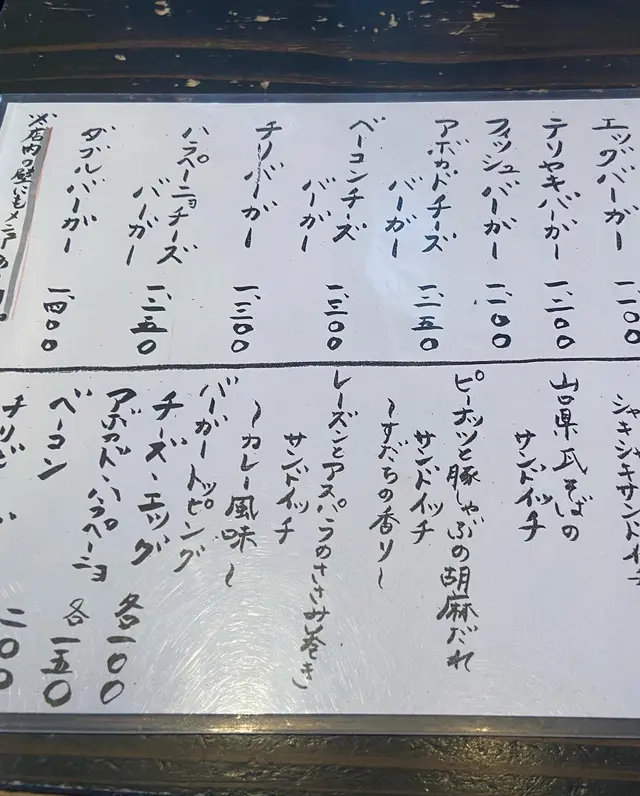 エッグバーガー 一、一〇〇
テリヤキバーガー 一、一〇〇
フィッシュバーガー 一、一〇〇
アボカドチーズ
バーガー 一、二五〇
ベーコンチーズ
バーガー 一、三〇〇
チリバーガー 一、二〇〇
ハラペーニョチーズ
バーガー 一、二五〇
ダブルバーガー 一、四〇〇
※店内の壁にもメニューあり〼。
シャキシャキサンドイッチ
山口県瓦そばの
サンドイッチ
ピーナッツと豚しゃぶの胡麻だれ
サンドイッチ
〜すだちの香り〜
レーズンとアスパラのささみ巻き
サンドイッチ
〜カレー風味〜
バーガートッピング
チーズ・エッグ
アボカド・ハラペーニョ 各一〇〇
ベーコン 各一五〇
チリビーンズ 二〇〇